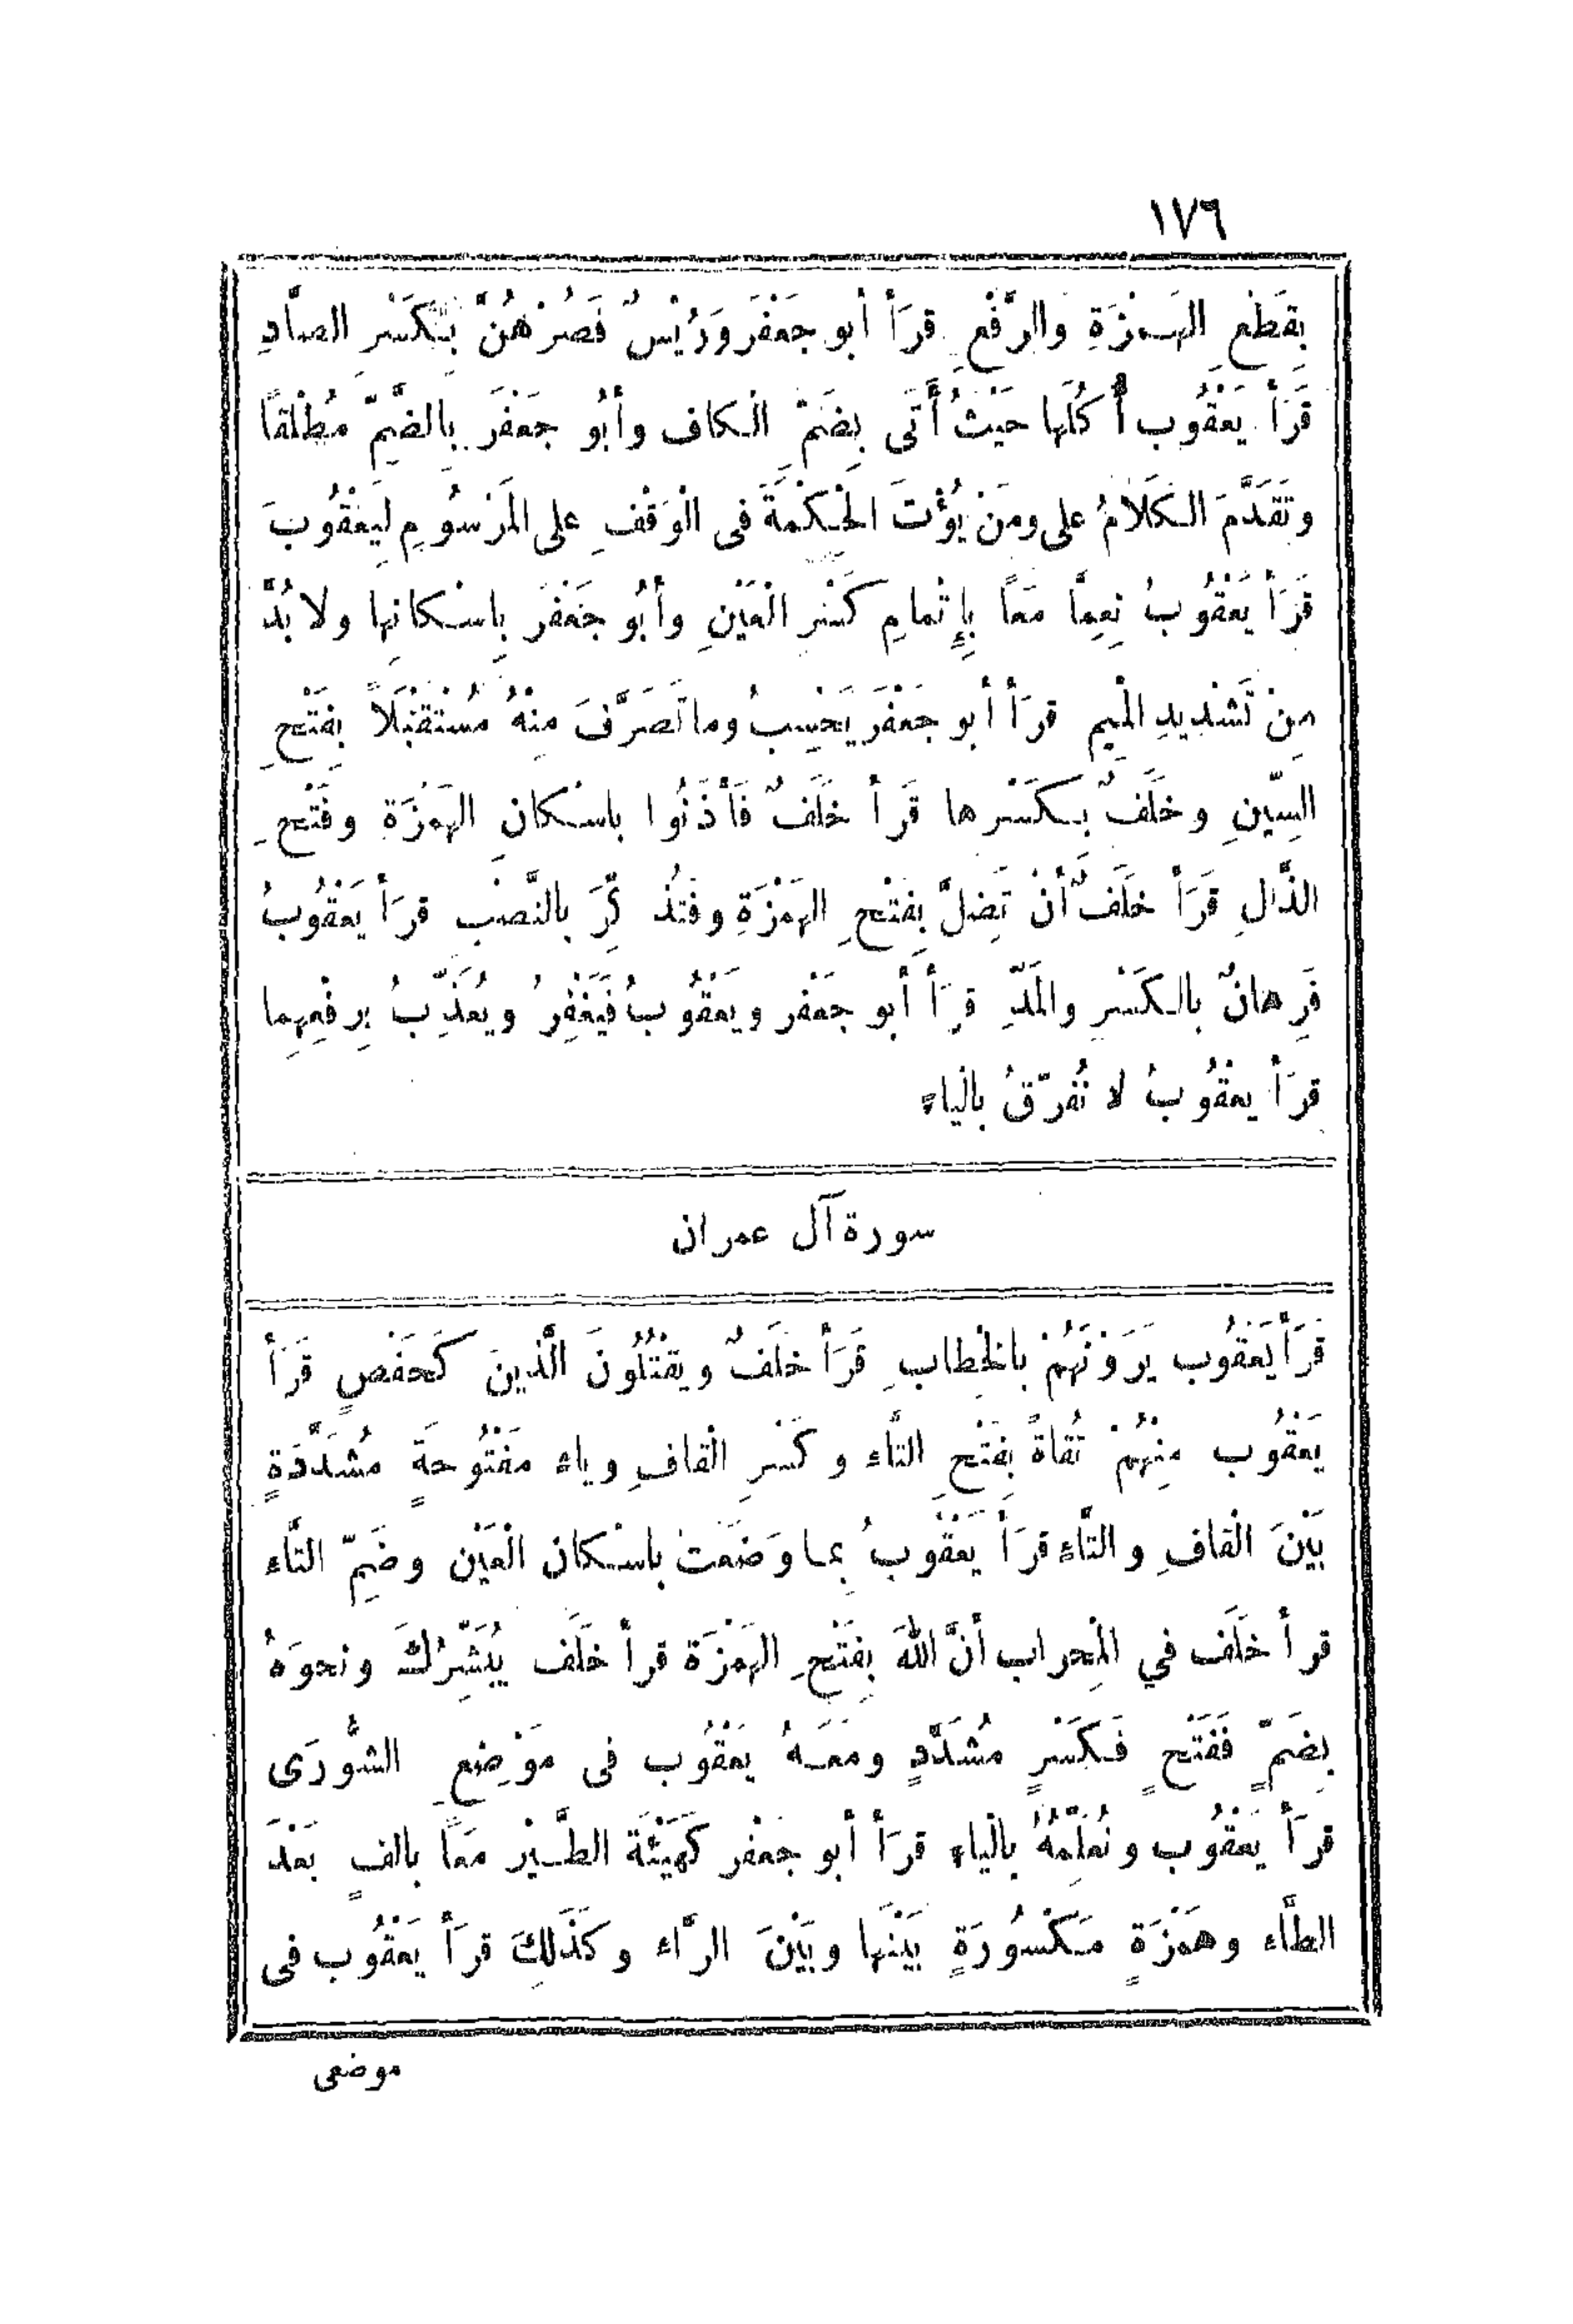 ١٧٦
بِقَطْعِ الهَمْزَةِ والرَّفْعِ قرَأَ أبو جَعْفَرَ وَرُيْسٌ فَصُرْهُنَّ بِكَسْرِ الصَّادِ
قَرَأَ يَعْقُوب أُكُلَها حَيْثُ أَتَى بِضَمِّ الْكاف وأبُو جَعْفَرَ بِالضَّمِّ مُطْلَقاً
وتَقَدَّمَ الكَلَامُ على ومَنْ يُؤْتَ الْحِكْمَةَ فى الْوَقْفِ على المَرْسُومِ لِيَعْقُوبَ
قَرَأَ يَعْقُوبُ نِعِمَّا مَعاً بِإِتْمامِ كَسْرِ الْعَيْنِ وأبُو جَعْفَرَ بِاسْكانِها ولا بُدَّ
مِنْ تَشْدِيدِ الْمِيمِ قرَأَ أبو جَعْفَرَ يَحْسِبُ وما تَصَرَّفَ مِنْهُ مُسْتَقْبَلاً بِفَتْحِ
السِّينِ وخَلَفٌ بِكَسْرِها قَرَأَ خَلَفٌ فَأْذَنُوا باسْكانِ الهَمْزَةِ وفَتْحِ
الذَّالِ قَرَأَ خَلَفٌ أنْ تَضِلَّ بِفَتْحِ الهَمْزَةِ وفَتُذَ كِّرَ بالنَّصْبِ قرَأَ يَعْقُوبُ
فَرِهانٌ بالكَسْرِ والمَدِّ قرَأَ أبو جَعْفَر ويَعْقُوبُ فَيَغْفِرُ ويُعَذِّبُ بِرفْعِهِما
قرَأَ يعْقُوبُ لا نُفَرِّقُ بالْياءِ
سورة آل عمران
قَرَأَ يَعْقُوب يَرَوْنَهُمْ بالخِطابِ قَرَأَ خَلَفٌ ويقْتُلُونَ الَّذِينَ كَحَفْصٍ قَرَأَ
يَعْقُوب مِنْهُمْ تُقاةً بِفَتْحِ التَّاء وكَسْرِ الْقافِ وياء مَفْتُوحةٍ مُشَدَّدَةٍ
بَيْنَ الْقافِ والتَّاءِ قرَأَ يَعْقُوبُ بِما وَضَعَتْ باسْكان الْعَيْن وضَمِّ التَّاء
قرأَ خَلَف في الْمِحراب أنَّ اللهَ بِفَتْحِ الهَمْزَة قرأَ خَلَف يُبَشِّرُكَ ونحوَهُ
بِضَمٍّ فَفَتْحٍ فَكَسْرٍ مُشَدَّدٍ ومَعَهُ يَعْقُوب فى مَوْضِعِ الشُّورَى
قرَأَ يَعْقُوب ونُعَلِّمُهُ بالْياءِ قرَأَ أبو جَعْفَر كَهَيْئَةِ الطَّيْرِ مَعاً بالفٍ بَعْدَ
الطَّاء وهَمْزَةٍ مَكْسُورَةٍ بَيْنَها وبَيْنَ الرَّاء وكَذَلِكَ قرَأَ يَعْقُوب فى
موضعى